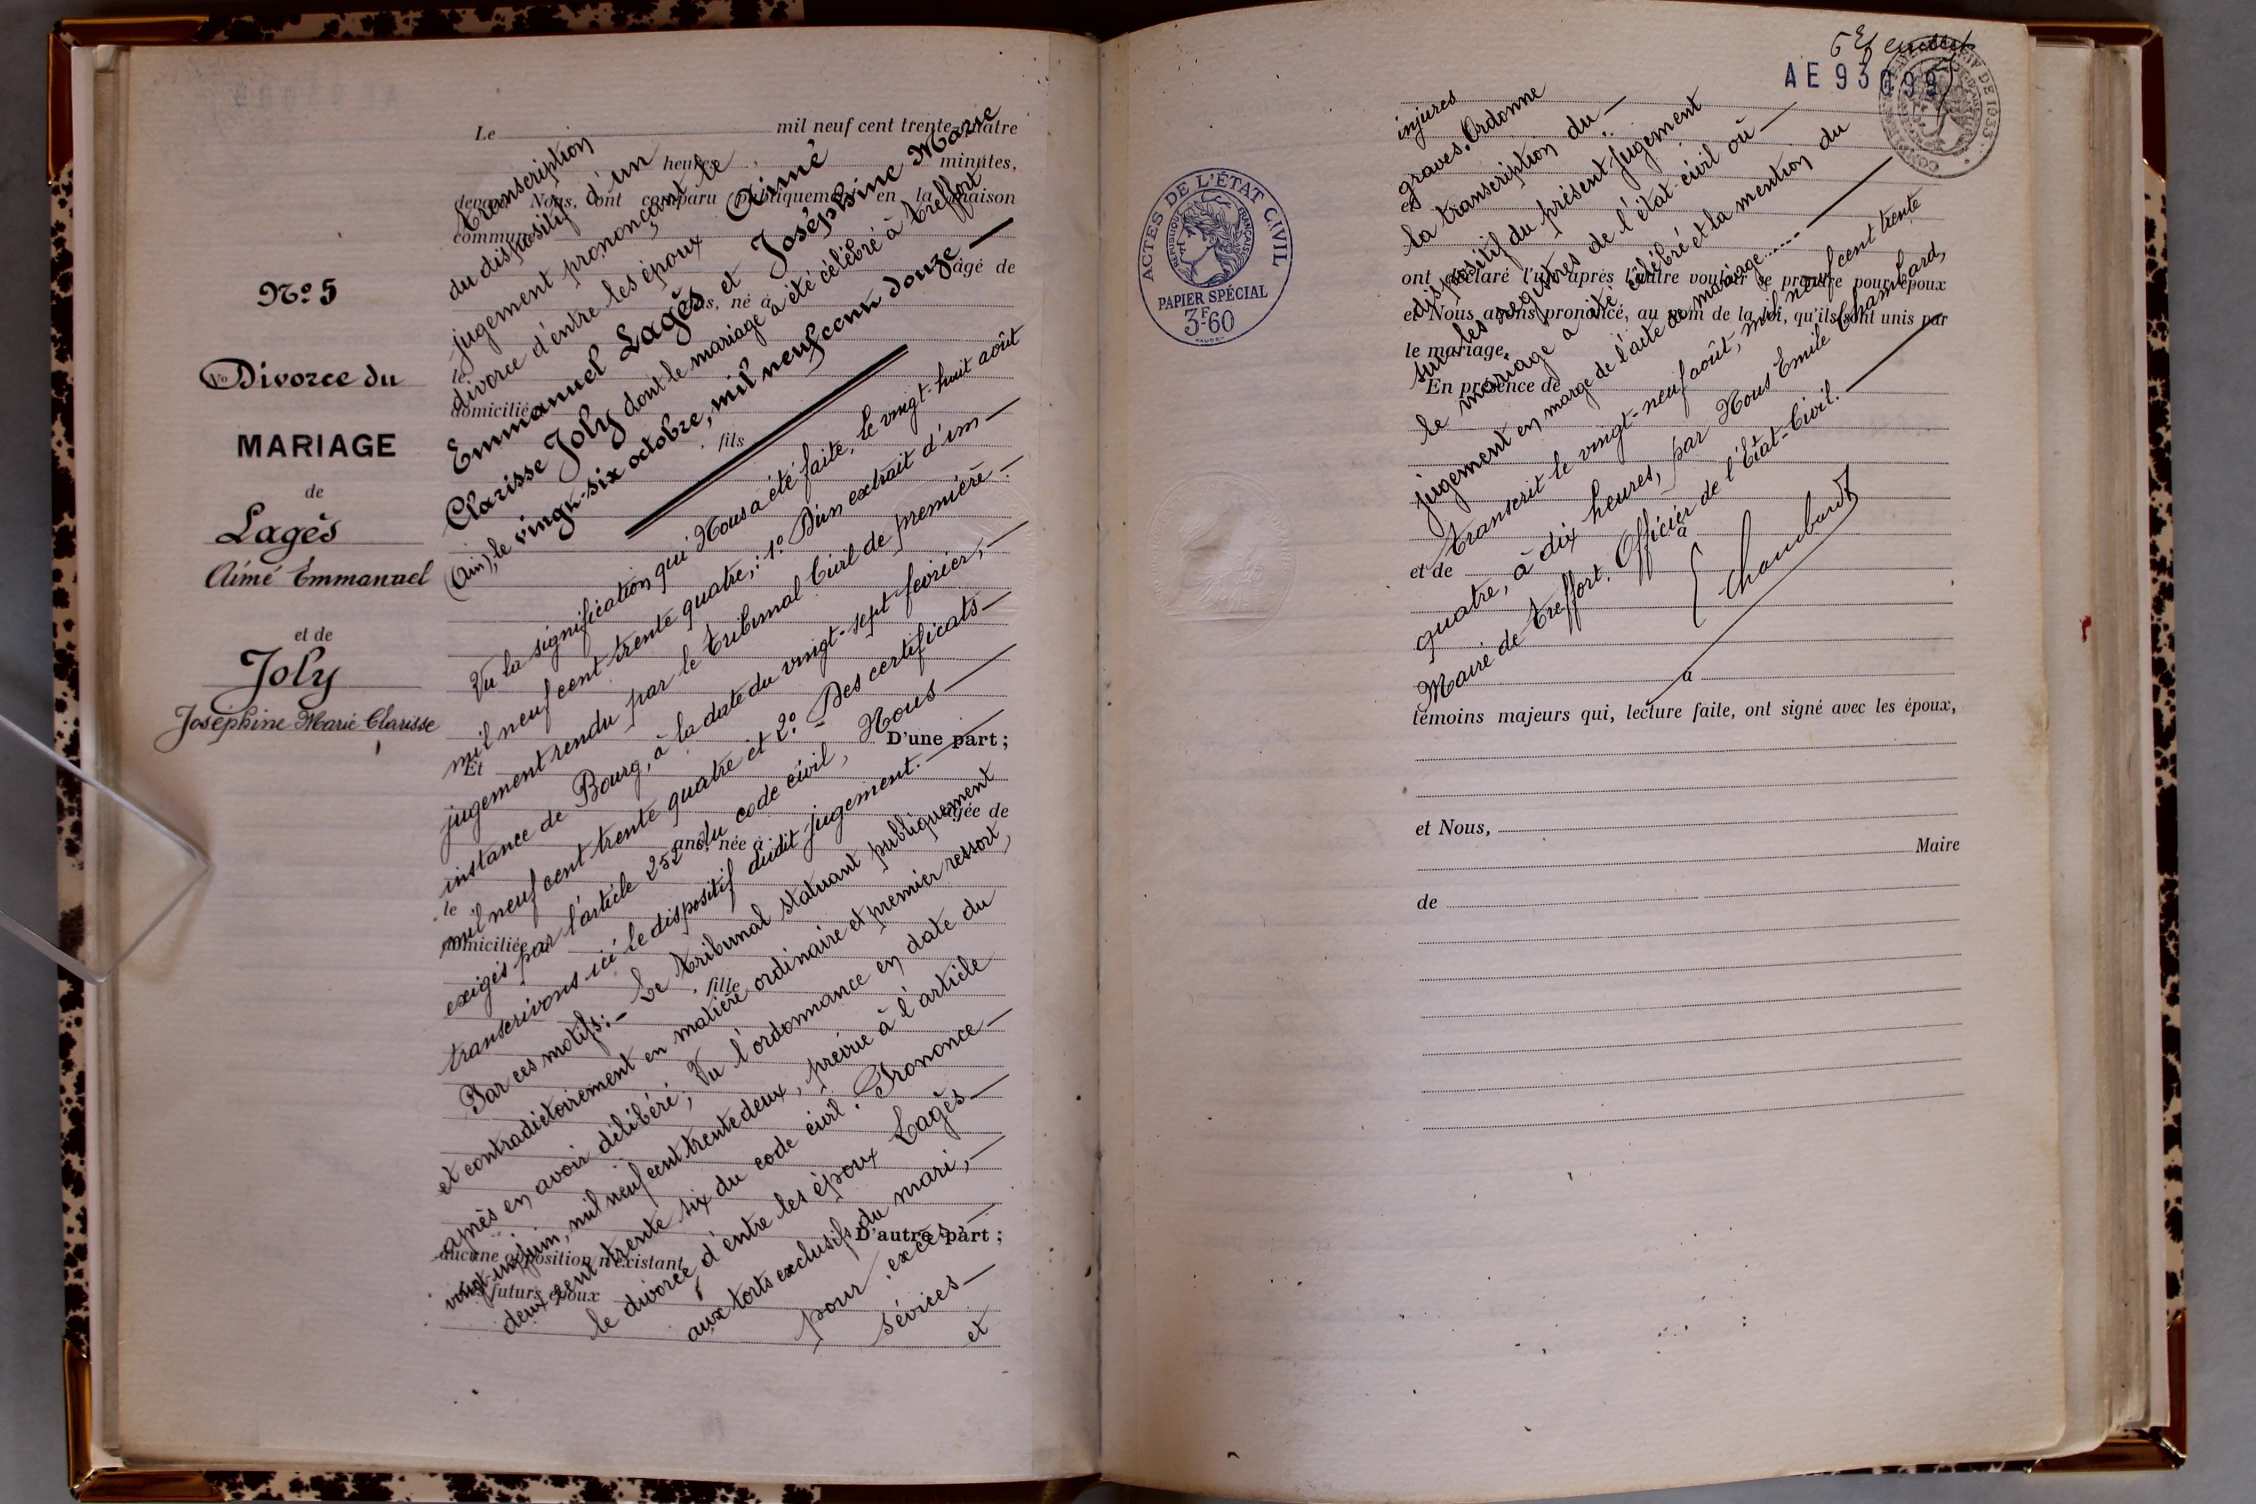 Nº 5
Divorce du
MARIAGE
de
Lagès
Aimé Emmanuel
et de
Joly
Joséphine Marie Clarisse
Le mil neuf cent trente-quatre
heures minutes,
devant Nous, ont comparu publiquement en la maison
commune
âgé de
ans, né à
le
domicilié
fils
D'une part ;
Et
âgée de
ans, née à
le
domiciliée
fille
D'autre part ;
aucune opposition n'existant
futurs époux
Transcription
du dispositif d'un
jugement prononçant le
divorce d'entre les époux Aimé
Emmanuel Lagès et Joséphine Marie
Clarisse Joly dont le mariage a été célébré à Treffort
(Ain), le vingt-six octobre, mil neuf cent douze
Vu la signification qui Nous a été faite, le vingt-huit août
mil neuf cent trente quatre, : 1º D'un extrait d'un
jugement rendu par le Tribunal Civil de première
instance de Bourg, à la date du vingt-sept février,
mil neuf cent trente quatre et 2º Des certificats
exigés par l'article 252 du code civil, Nous
transcrivons ici le dispositif dudit jugement.
Par ces motifs : Le Tribunal statuant publiquement
et contradictoirement en matière ordinaire et premier ressort,
après en avoir délibéré ; Vu l'ordonnance en date du
vingt-un juin, mil neuf cent trente deux, prévue à l'article
deux cent trente six du code civil : Prononce
le divorce d'entre les époux Lagès
aux torts exclusifs du mari,
pour excès,
sévices
et
AE 93099
ACTES DE L'ÉTAT CIVIL
RÉPUBLIQUE FRANÇAISE
PAPIER SPÉCIAL
3F60
injures
graves, Ordonne
la transcription du
dispositif du présent jugement
sur les registres de l'état-civil où
le mariage a été célébré et la mention du
jugement en marge de l'acte de mariage......
Transcrit le vingt-neuf août, mil neuf cent trente
quatre, à dix heures, par Nous Emile Chambard,
Maire de Treffort. Officier de l'Etat-Civil.
E Chambard
et
ont déclaré l'un après l'autre vouloir se prendre pour époux
et Nous avons prononcé, au nom de la loi, qu'ils sont unis par
le mariage.
En présence de
à
et de
à
témoins majeurs qui, lecture faite, ont signé avec les époux,
et Nous,
Maire
de